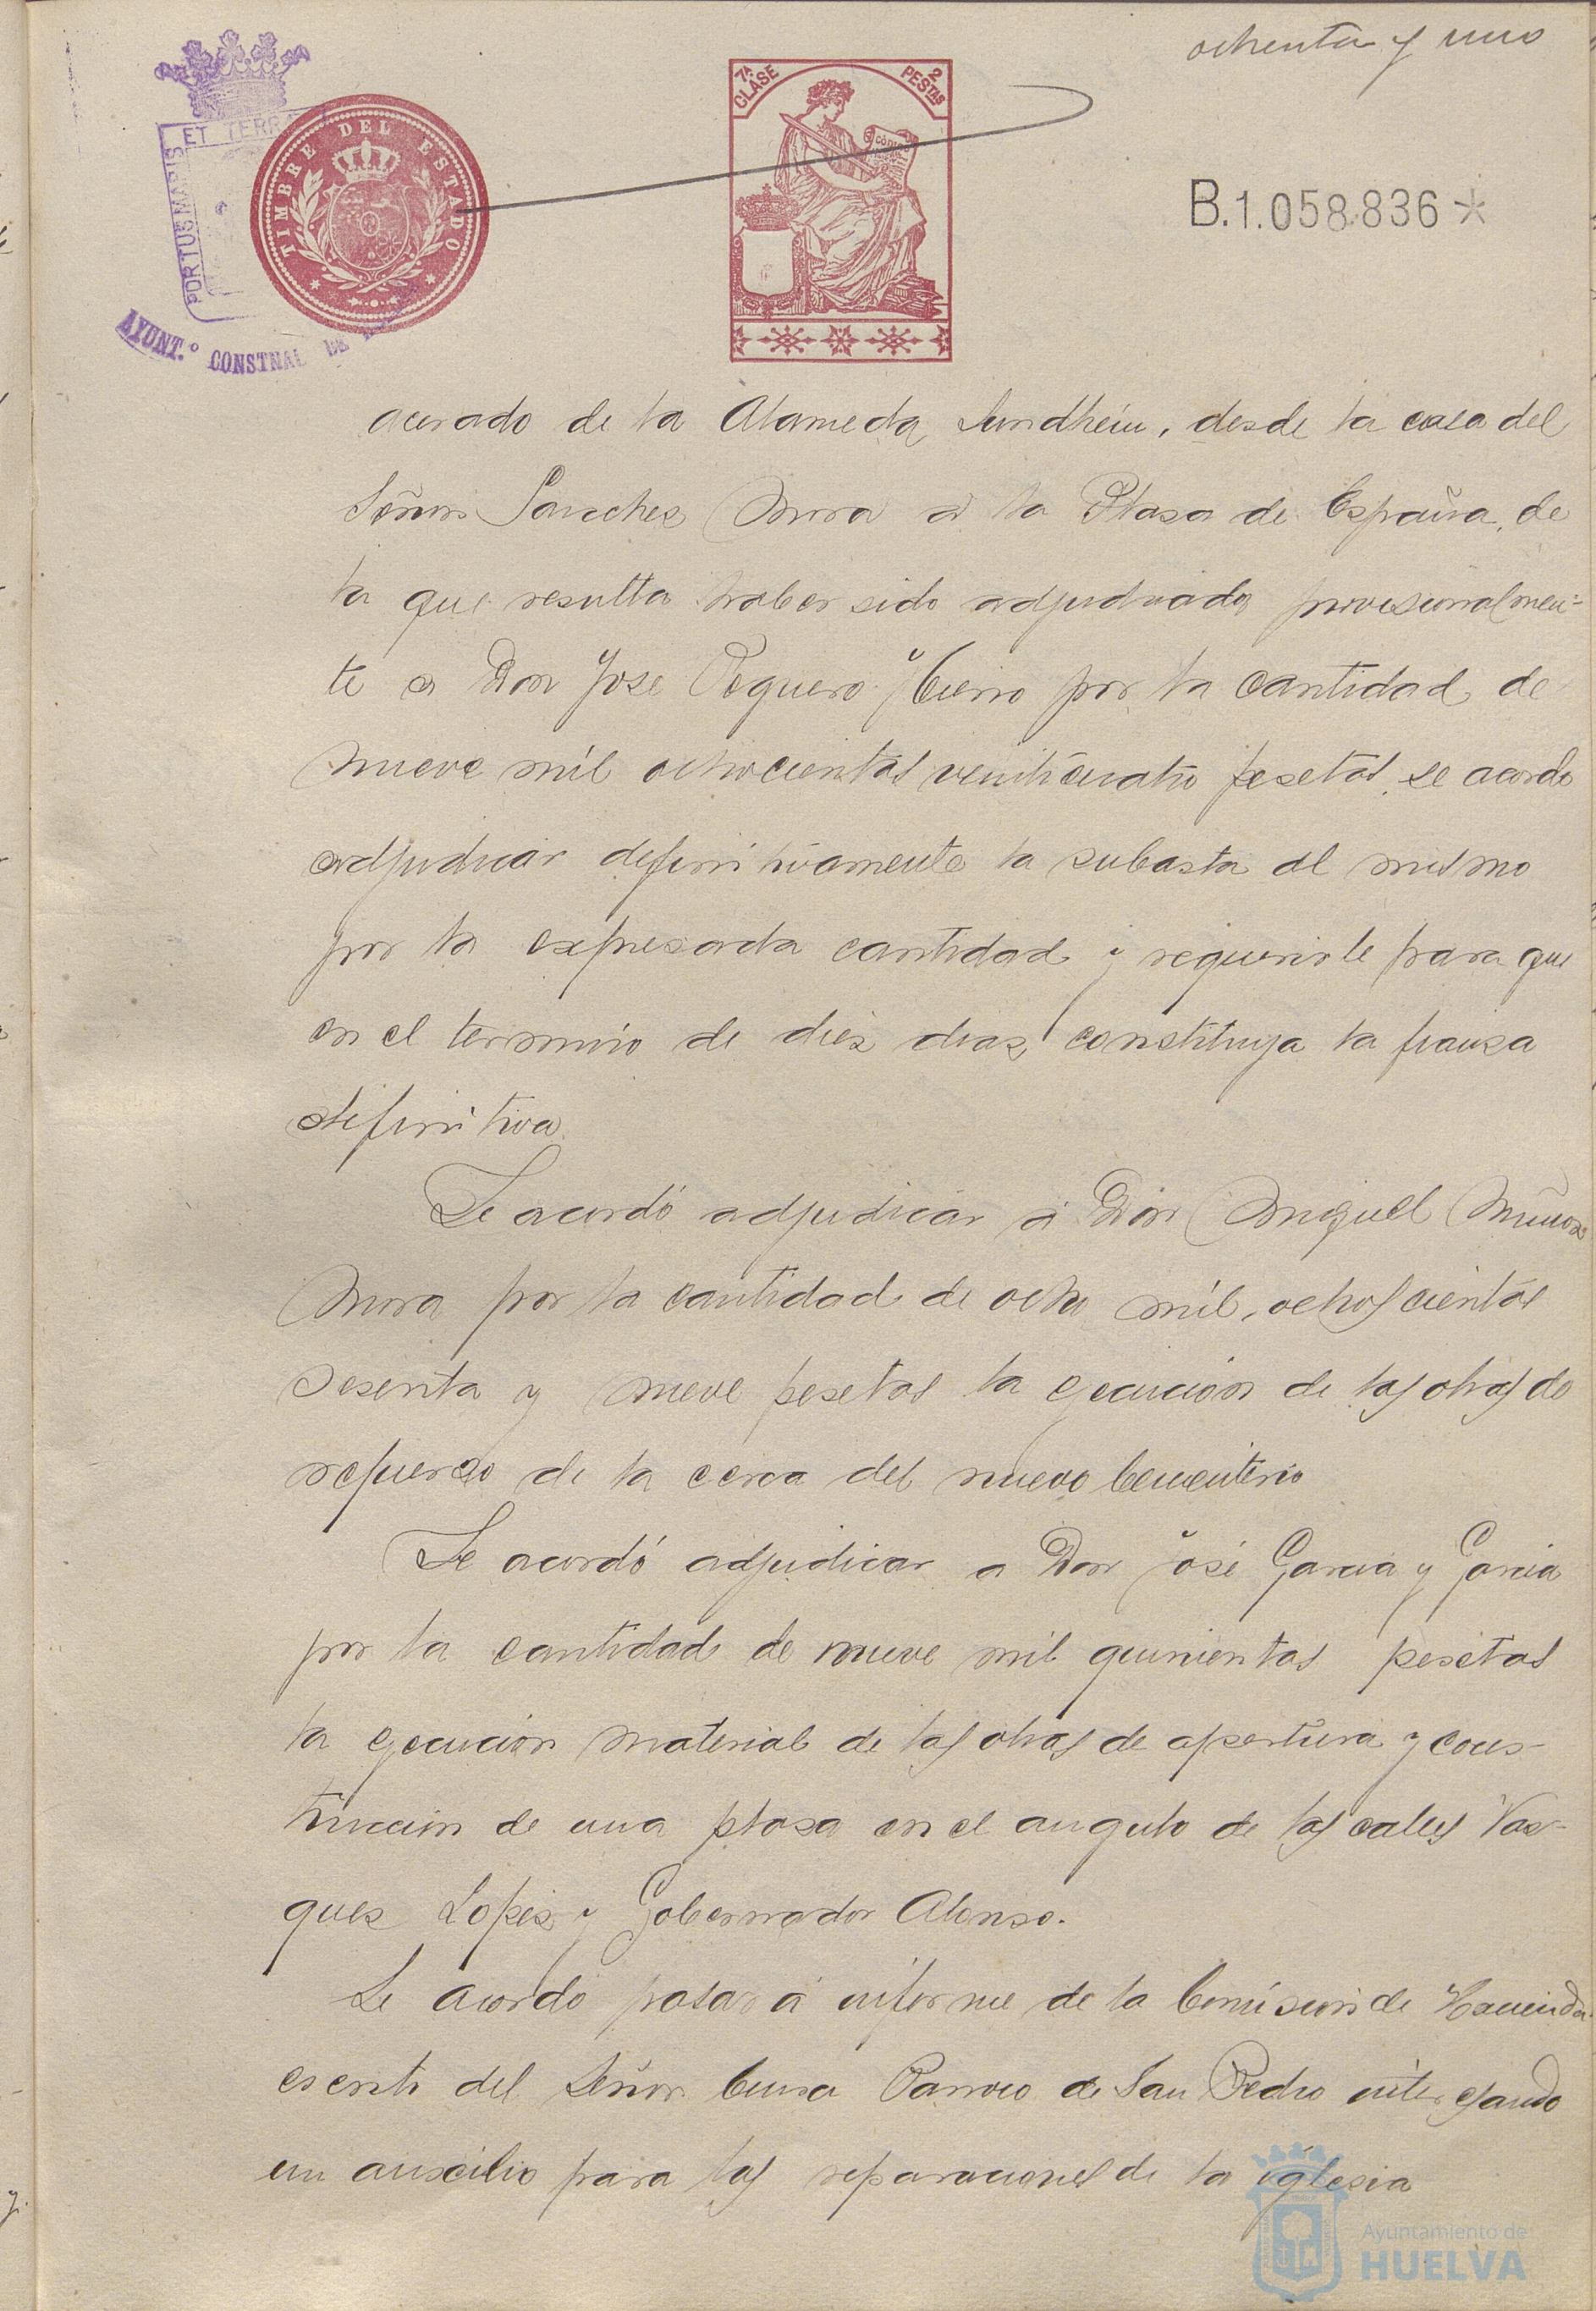 ochenta y uno
ET TERRÆ
PORTUS MARIS
AYUNT.º CONSTNAL DE
TIMBRE DEL ESTADO
7ª CLASE
2 PESTAS
B.1.058.836*
acerado de la Alameda Sundhein, desde la casa del
Señor Sanchez Mora a la Plasa de España, de
la que resulta haber sido adjudicada provisionalmen-
te a Don Jose Peguero Hierro por la cantidad de
nueve mil ochocientas veinticuatro pesetas, se acordo
adjudicar definitivamente la subasta al mismo
por la expresada cantidad y requerirle para que
en el termino de diez dias constituya la fianza
definitiva.
Se acordó adjudicar a Don Miguel Muñoz
Mora por la cantidad de ocho mil, ochoscientas
sesenta y nueve pesetas la ejecución de las obras de
refuerzo de la cerca del nuevo Cementerio
Se acordó adjudicar a Don José Garcia y Garcia
por la cantidad de nueve mil quinientas pesetas
la ejecución material de las obras de apertura y cons-
trucción de una plasa en el angulo de las calles Vas-
ques Lopez y Gobernador Alonso.
Se acordó pasar a informe de la Comision de Hacienda
escrito del Señor Cura Parroco de San Pedro interesando
un auscilio para las reparaciones de la iglesia
Ayuntamiento de
HUELVA